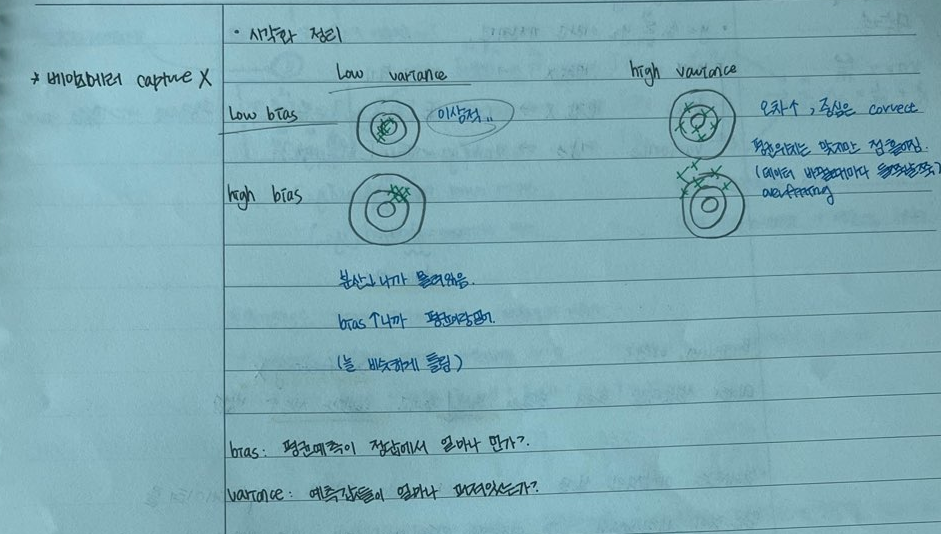 · 시각화 정리
* 베이즈에러 capture X
Low variance
high variance
Low bias
이상적..
오차↑, 중심은 correct
평균위치는 맞지만 점 흩어짐.
(데이터 바뀔때마다 들쭉날쭉)
overfitting
high bias
분산↓니까 몰려있음.
bias↑니까 평균이랑 멀어.
(늘 비슷하게 틀림)
bias: 평균예측이 정답에서 얼마나 먼가?.
variance: 예측값들이 얼마나 퍼져있는가?.